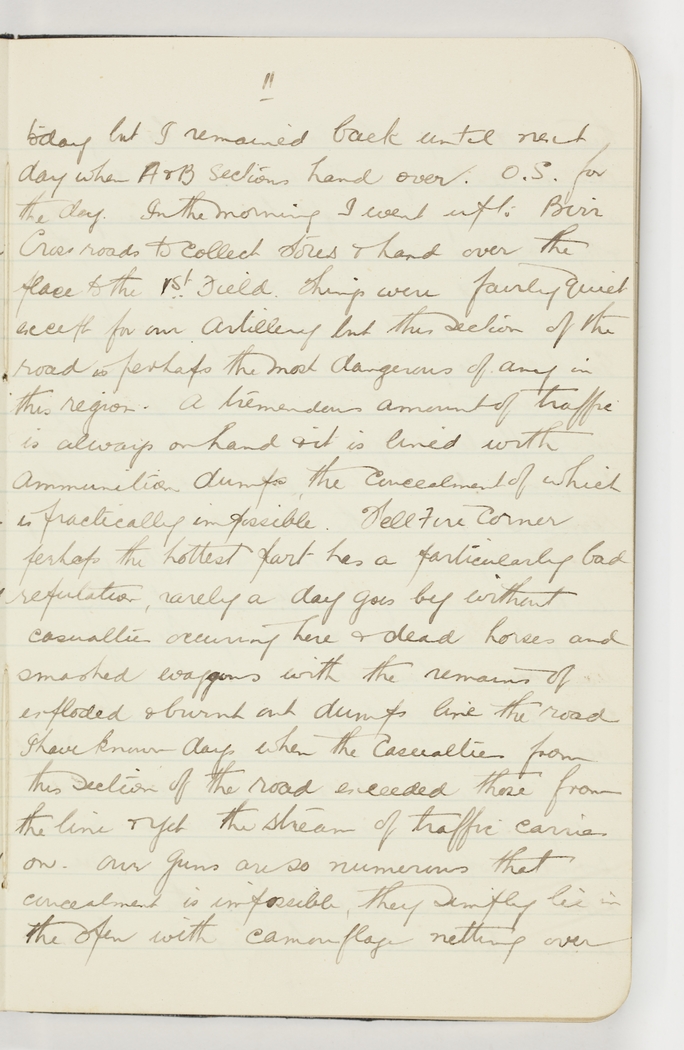 11
today but I remained back until next
day when A & B Sections hand over. O.S. for
the day. In the morning I went up to Birr
Cross roads to collect stores & hand over the
place to the 1st Field. Things were fairly quiet
except for our artillery but this section of the
road is perhaps the most dangerous of any in
this region. A tremendous amount of traffic
is always on hand & it is lined with
ammunition dumps, the concealment of which
is practically impossible. Hell Fire Corner
perhaps the hottest part has a particularly bad
reputation, rarely a day goes by without
casualties occuring here & dead horses and
smashed waggons with the remains of
exploded & burnt out dumps line the road
I have known days when the casualties from
this section of the road exceeded those from
the line & yet the stream of traffic carries
on. Our guns are so numerous that
concealment is impossible, they simply lie in
the open with camouflage netting over